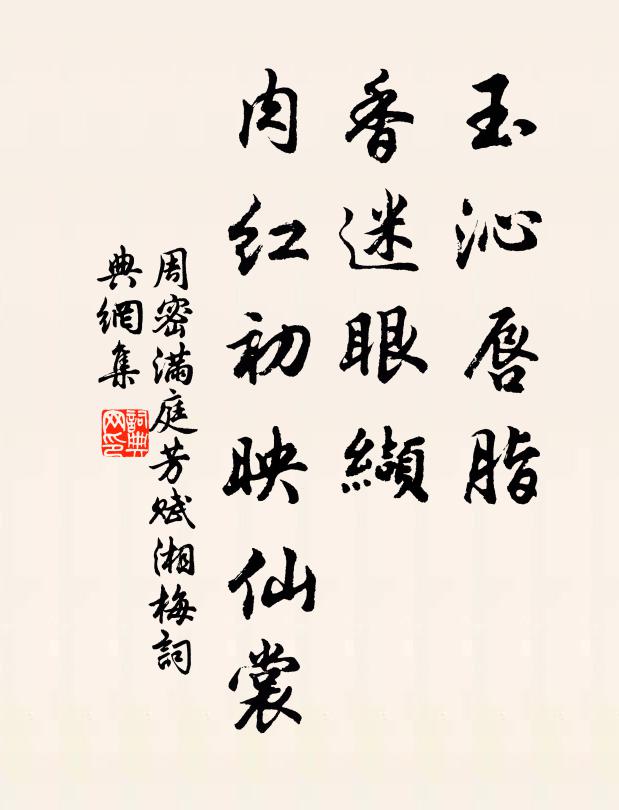 玉沁唇脂
香迷眼纈
肉红初映仙裳
周密满庭芳赋湘梅詞
典網集
詞典网印